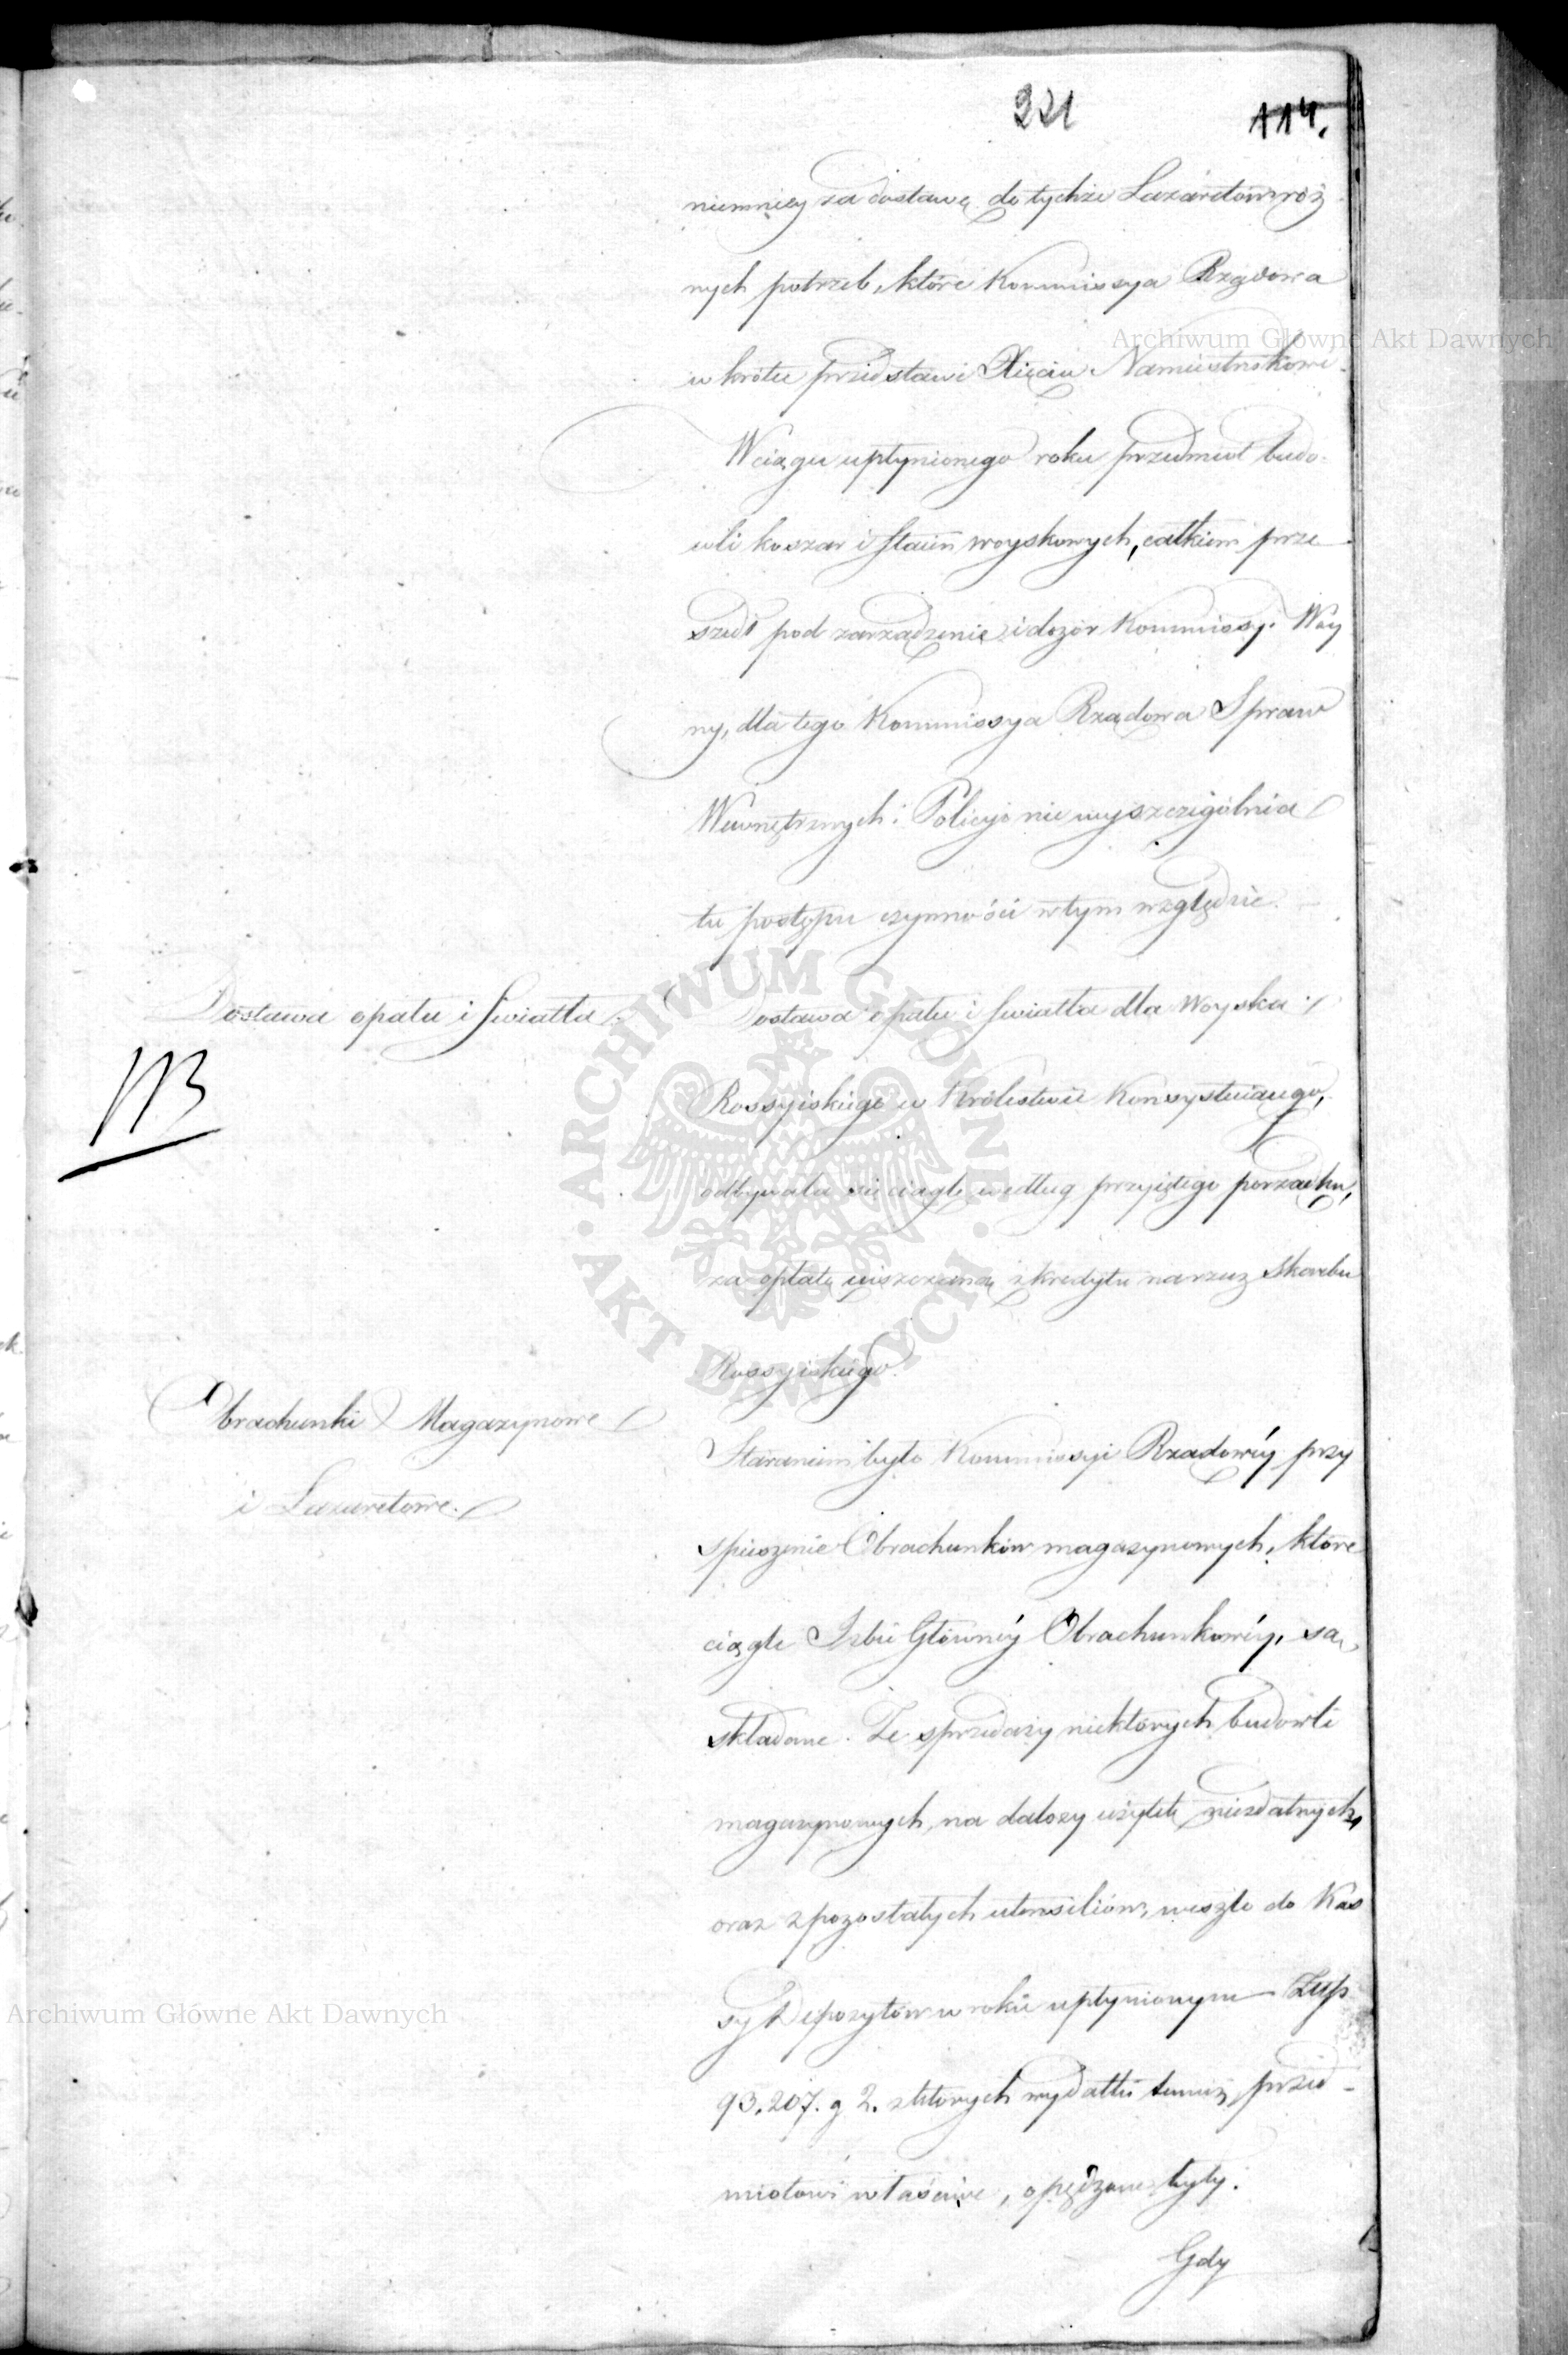 221
114.
niemniey za dostawę do tychże Lazaretów róż
nych potrzeb, które Kommissya Rządowa
w krótce przedstawi Xięciu Namiestnikowi.
W ciągu upłynionego roku przedmiot budo-
wli koszar i stain woyskowych, całkiem prze
szedł pod zarządzenie i dozór Kommissyi Woy
ny, dla tego Kommissya Rządowa Spraw
Wewnętrznych i Policyi nie wyszczególnia
tu postępu czynności w tym względzie.
Dostawa opału i Swiatła.
Dostawa opału i swiatła dla Woyska
113
Rossyiskiego w Królestwie Konsystuiącego,
odbywała się ciągle według przyiętego porządku,
za opłatę uiszczaną z kredytu na rzecz Skarbu
Rossyiskiego.
Obrachunki Magazynowe
i Lazaretowe.
Staraniem było Kommissyi Rządowéy przy
spieszenie Obrachunków magazynowych, które
ciągle Izbie Głównéy Obrachunkowéy, są
składane. Ze sprzedaży niektórych budowli
magazynowych, na dalszy użytek niezdatnych,
oraz z pozostałych utensiliów, weszło do Kas
sy Depozytów w roku upłynionym Złlp
93.207. g 2. z których wydatki temuż przed-
miotowi właściwe, opędzane były.
Gdy
Archiwum Główne Akt Dawnych
Archiwum Główne Akt Dawnych
ARCHIWUM GŁÓWNE · AKT DAWNYCH ·